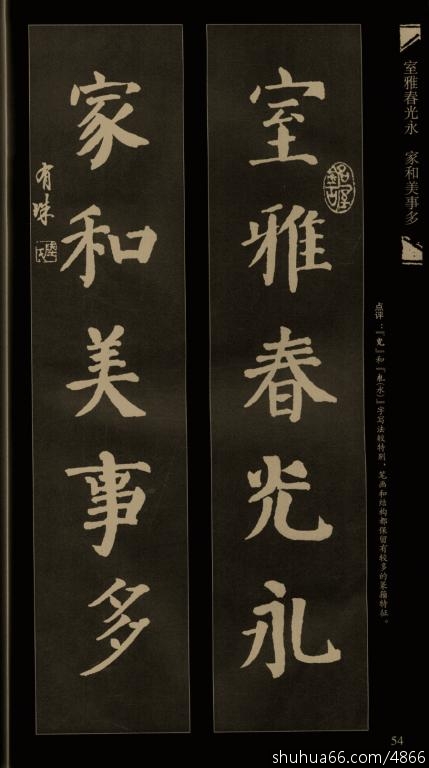 室雅春光永 家和美事多
点评：『光』和『永(永)』字写法较特别，笔画和结构都保留有较多的篆籀特征。
室雅春光永
家和美事多
有珠
54
shuhua66.com/4866